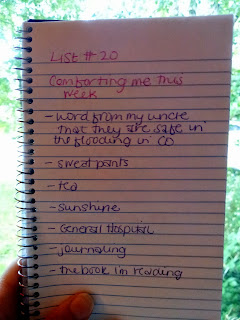 List # 20
Comforting me this
week
- word from my uncle
that they are safe in
the flooding in CO
- sweat pants
- tea
- sunshine
- General Hospital
- journaling
- the book I'm reading